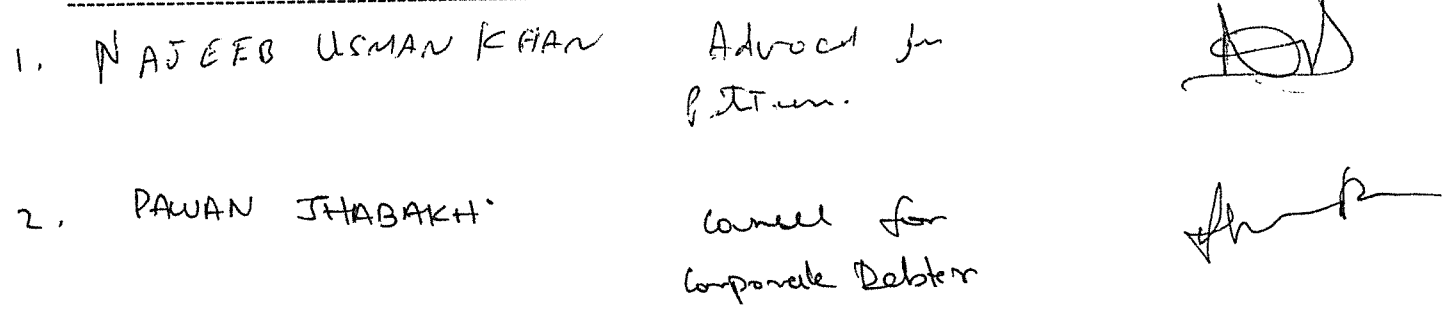 1. NAJEEB USMAN KHAN Advocat for
Petitioner.
2. PAWAN JHABAKH.
Counsel for
Corporate Debtor